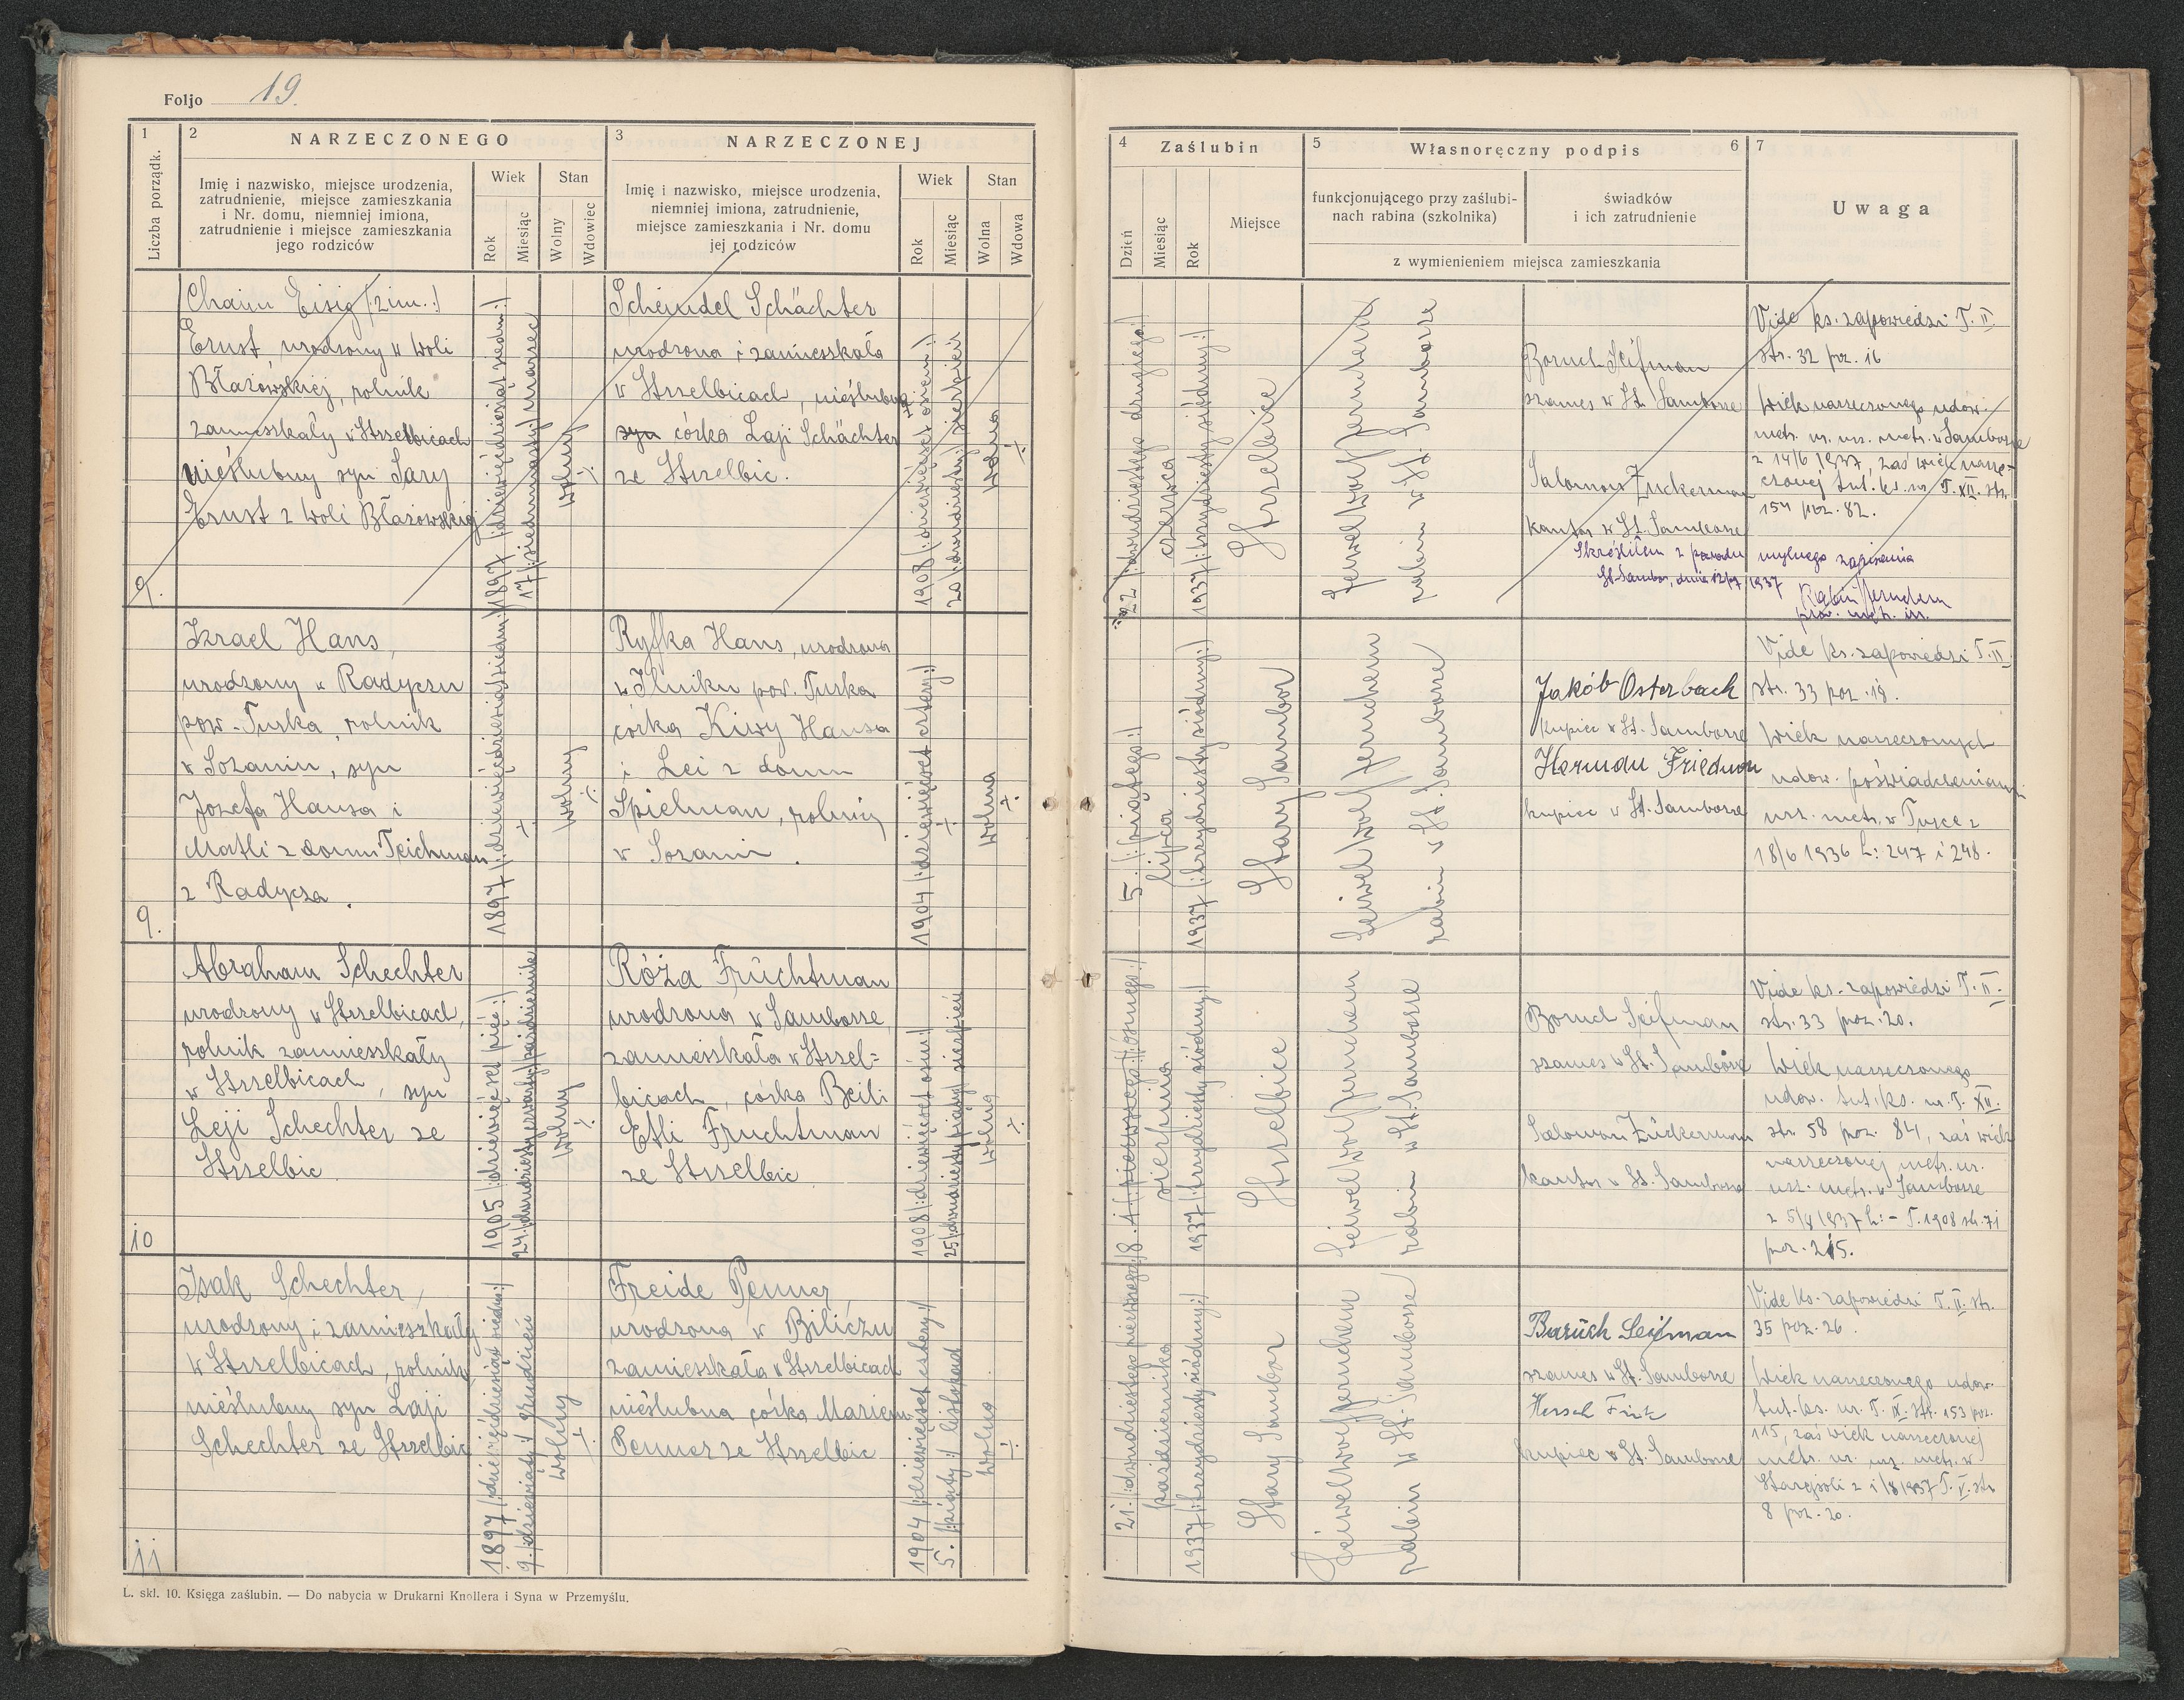 Foljo 19.
1
Liczba porządk.
2 NARZECZONEGO
Imię i nazwisko, miejsce urodzenia,
zatrudnienie, miejsce zamieszkania
i Nr. domu, niemniej imiona,
zatrudnienie i miejsce zamieszkania
jego rodziców
Wiek
Rok
Miesiąc
Stan
Wolny
Wdowiec
3 NARZECZONEJ
Imię i nazwisko, miejsce urodzenia,
niemniej imiona, zatrudnienie,
miejsce zamieszkania i Nr. domu
jej rodziców
Wiek
Rok
Miesiąc
Stan
Wolna
Wdowa
4 Zaślubin
Dzień
Miesiąc
Rok
Miejsce
5 Własnoręczny podpis 6
funkcjonującego przy zaślubi-
nach rabina (szkolnika)
świadków
i ich zatrudnienie
z wymienieniem miejsca zamieszkania
7
Uwaga
9.
Chaim Eisig (2 im.:)
Ernst, urodzony w Woli
Błażowskiej, rolnik
zamieszkały w Strzelbicach
nieślubny syn Sary
Ernst z Woli Błażowskiej
1897
17 |: siedemnasty :| marzec
wolny
Scheindel Schächter
urodzona i zamieszkała
w Strzelbicach, nieślubna
syn córka Laji Schächter
ze Strzelbic.
1908 |: dziewięćset osiem :|
20 |: dwudziesty :| sierpień
wolna
22 |: dwudziestego drugiego :|
czerwca
1937 |: trzydziesty siódmy :|
Strzelbice
rabin w St. Samborze
Boruch Seifman
szames w St. Samborze
Salomon Zuckerman
kantor w St. Samborze
Vide ks. zapowiedzi T. II
str. 32 poz. 16
Wiek narzeczonego udow.
metr. ur. urz. metr. w Samborze
z 14/6 1937, zaś wiek narze-
czonej tut. ks. ur. T. XII. str.
154 poz. 82.
Skreśliłem z powodu mylnego zapisania
St. Sambor, dnia 12/7 1937
Rabin
prow. metr. izr.
9.
Izrael Hans,
urodzony w Radyczu
pow. Turka, rolnik
w Sozaniu, syn
Jozefa Hansa i
Matli z domu Teichman
z Radycza.
1897
wolny
Ryfka Hans, urodzona
w Ilniku pow. Turka
córka Kiwy Hansa
i Lei z domu
Spielman, rolnicy
w Sozani.
1904 |: dziewięćset cztery :|
wolna
5. |: piątego :|
lipca
1937 |: trzydziesty siódmy :|
Stary Sambor
rabin w St. Samborze
Jakób Osterbach
kupiec w St. Samborze
Herman Friedman
kupiec w St. Samborze
Vide ks. zapowiedzi T. II.
str. 33 poz. 18.
Wiek narzeczonych
udow. poświadczeniami
urz. metr. w Turce z
18/6 1936 L: 247 i 248.
10
Abraham Schechter
urodzony w Strzelbicach,
rolnik zamieszkały
w Strzelbicach, syn
Leji Schechter ze
Strzelbic
1905 |: dziewięćset pięć :|
24. |: dwudziesty czwarty :| październik
wolny
Róża Früchtman
urodzona w Samborze,
zamieszkała w Strzel-
bicach, córka Beili
Etli Fruchtman
ze Strzelbic
1908 |: dziewięćset osiem :|
25 |: dwudziesty piąty :| sierpień
wolna
8. |: ósmego :|
sierpnia
1937 |: trzydziesty siódmy :|
Strzelbice
rabin w St. Samborze
Boruch Seifman
szames w St. Samborze
Salomon Zückerman
kantor w St. Samborze
Vide ks. zapowiedzi T. II.
str. 33 poz. 20.
Wiek narzeczonego
udow. tut. ks. ur. T. XII.
str. 58 poz. 84, zaś wiek
narzeczonej metr. ur.
urz. metr. w Samborze
z 5/4 1937 L: - T. 1908 str. 71
poz. 215.
11
Isak Schechter,
urodzony i zamieszkały
w Strzelbicach, rolnik,
nieślubny syn Laji
Schechter ze Strzelbic
1897 |: dziewięćdziesiąt siedm :|
9. |: dziewiąty :| grudzień
wolny
Freide Penner,
urodzona w Biliczu
zamieszkała w Strzelbicach
nieślubna córka Mariem
Penner ze Strzelbic
1904 |: dziewięćset cztery :|
5. |: piąty :| listopad
wolna
21. |: dwudziestego pierwszego :|
października
1937 |: trzydziesty siódmy :|
Stary Sambor
rabin w St. Samborze
Baruch Seifman
szames w St. Samborze
Hersch
kupiec w St. Samborze
Vide ks. zapowiedzi T. II. str.
35 poz. 26.
Wiek narzeczonego udow.
tut. ks. ur. T. IX. str. 153 poz.
115, zaś wiek narzeczonej
metr. ur. urz. metr. w
Starejsoli z 1/8 1937 T. V. str.
8 poz. 20.
L. skl. 10. Księga zaślubin. — Do nabycia w Drukarni Knollera i Syna w Przemyślu.